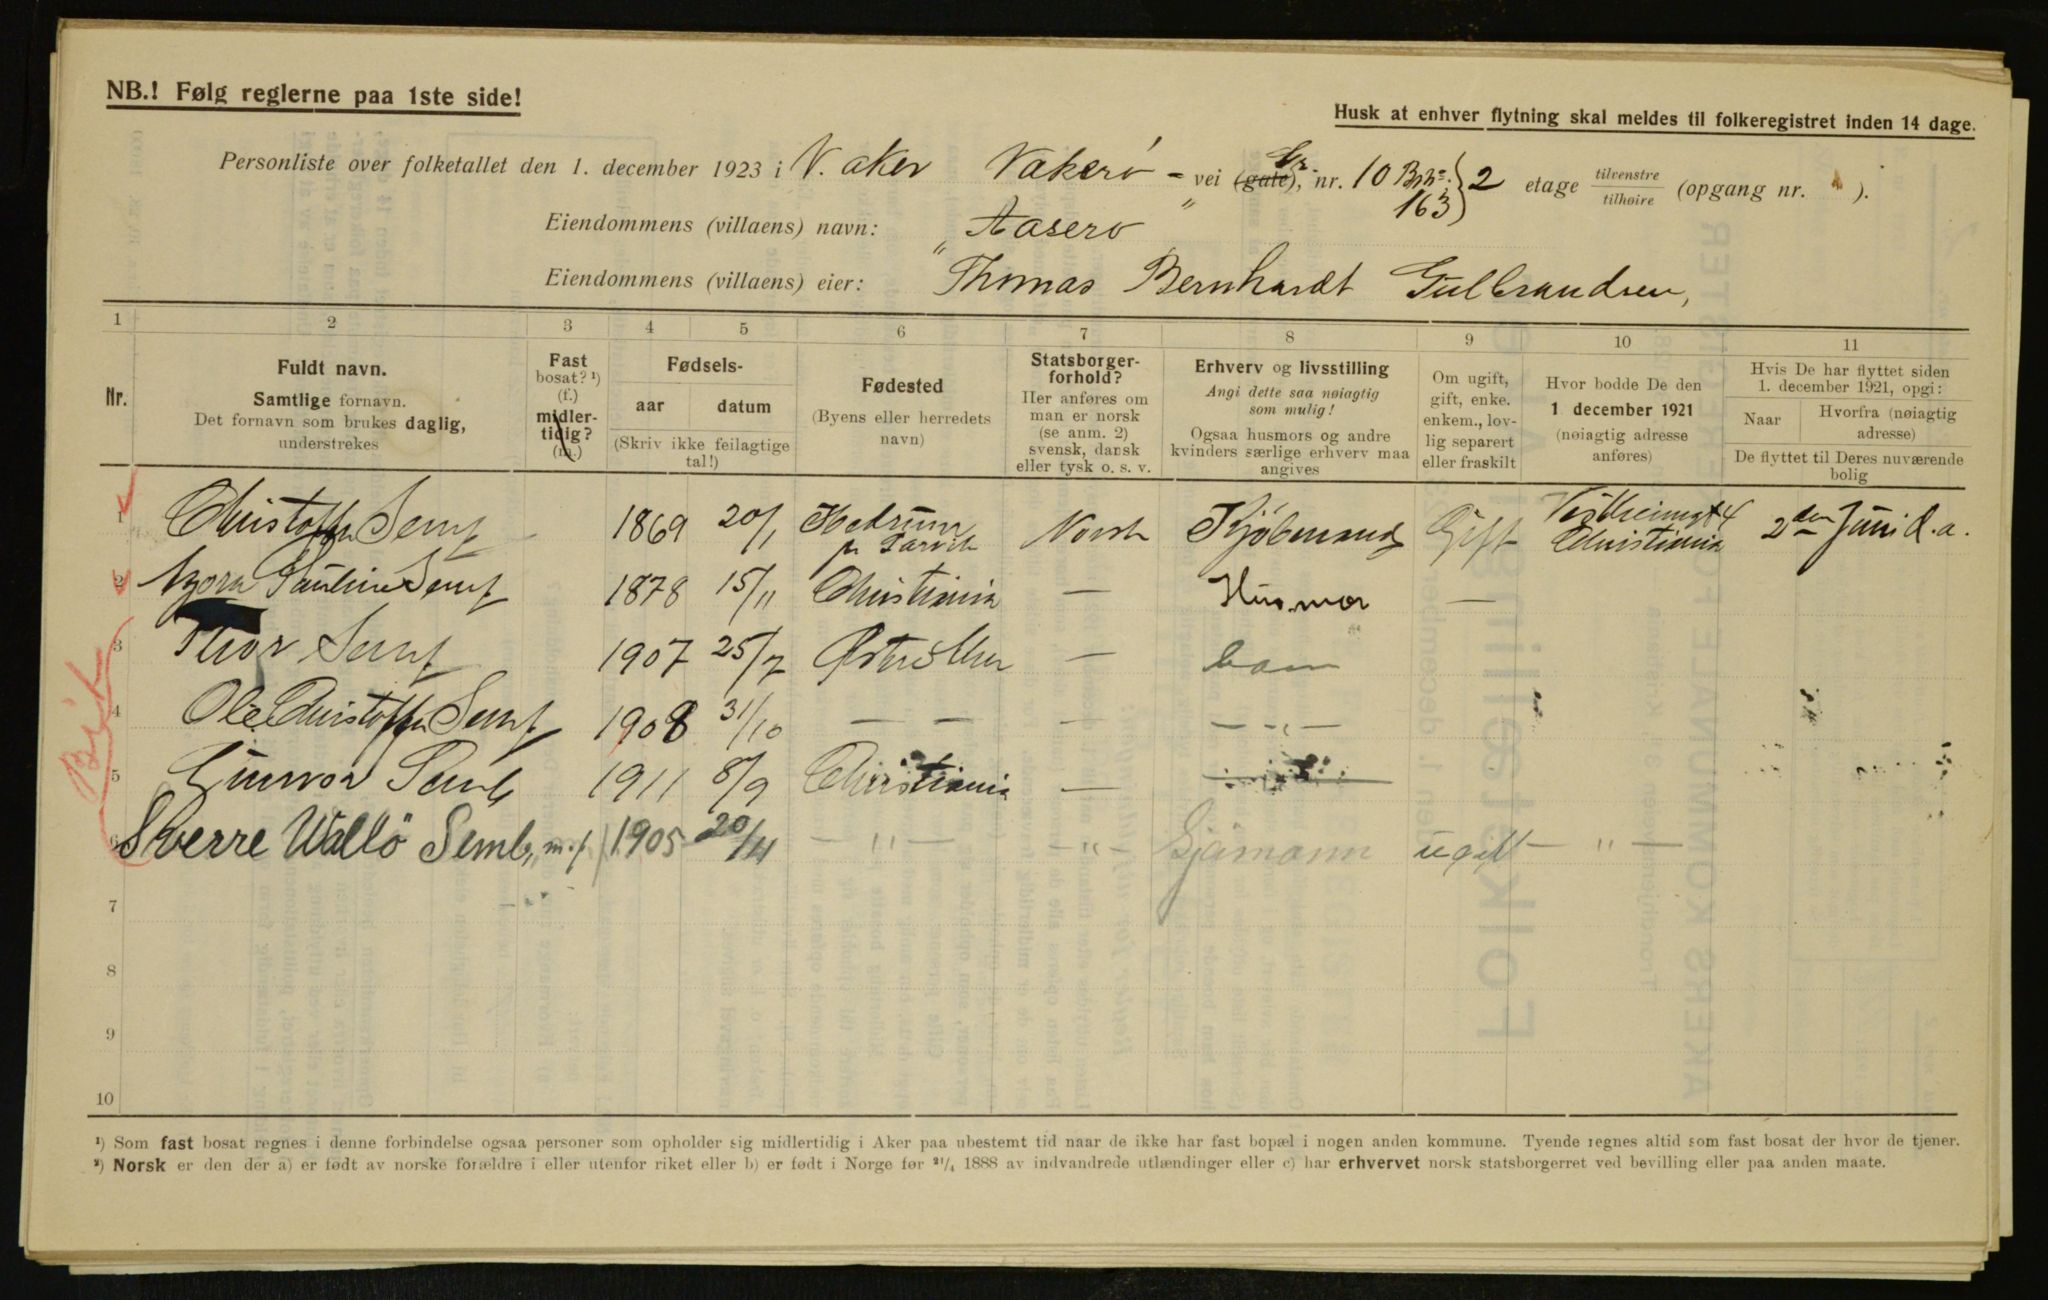 NB.! Følg reglerne paa 1ste side!
Husk at enhver flytning skal meldes til folkeregistret inden 14 dage.
Personliste over folketallet den 1. december 1923 i V. Aker Vækerø - vei (gate), Gr. nr. 10 Brn: 163 } 2 etage tilvenstre tilhøire (opgang nr. ).
Eiendommens (villaens) navn: "Aasero"
Eiendommens (villaens) eier: Thomas Bernhardt Gulbrandsen,
1 2 3 4 5 6 7 8 9 10 11
Nr.
Fuldt navn.
Samtlige fornavn.
Det fornavn som brukes daglig, understrekes
Fast bosat? ¹) (f.) midlertidig? (m.)
Fødsels-
aar datum
(Skriv ikke feilagtige tal!)
Fødested
(Byens eller herredets navn)
Statsborgerforhold?
Her anføres om man er norsk (se anm. 2) svensk, dansk eller tysk o. s. v.
Erhverv og livsstilling
Angi dette saa nøiagtig som mulig!
Ogsaa husmors og andre kvinders særlige erhverv maa angives
Om ugift, gift, enke. enkem., lovlig separert eller fraskilt
Hvor bodde De den 1 december 1921 (nøiagtig adresse anføres)
Hvis De har flyttet siden 1. december 1921, opgi:
Naar Hvorfra (nøiagtig adresse)
De flyttet til Deres nuværende bolig
1 Christoffer Semb 1869 20/1 Hedrum pr Larvik Norsk Kjøbmand Gift Vestheimgt 4 Christiania 2den Juni d.a.
2 Pauline Semb 1878 15/11 Christiania — Husmor —
3 Thor Semb 1907 25/7 Østre Aker — barn
4 Ole Christoffer Semb 1908 31/10 — — — — " —
5 Gunvor Semb 1911 8/9 Christiania —
6 Sverre Wallö Semb, m. 1905 20/11 — " — — " — Sjømann ugift — " —
7
8
9
10
¹) Som fast bosat regnes i denne forbindelse ogsaa personer som opholder sig midlertidig i Aker paa ubestemt tid naar de ikke har fast bopæl i nogen anden kommune. Tyende regnes altid som fast bosat der hvor de tjener.
²) Norsk er den der a) er født av norske forældre i eller utenfor riket eller b) er født i Norge før ²¹/₄ 1888 av indvandrede utlændinger eller c) har erhvervet norsk statsborgerret ved bevilling eller paa anden maate.